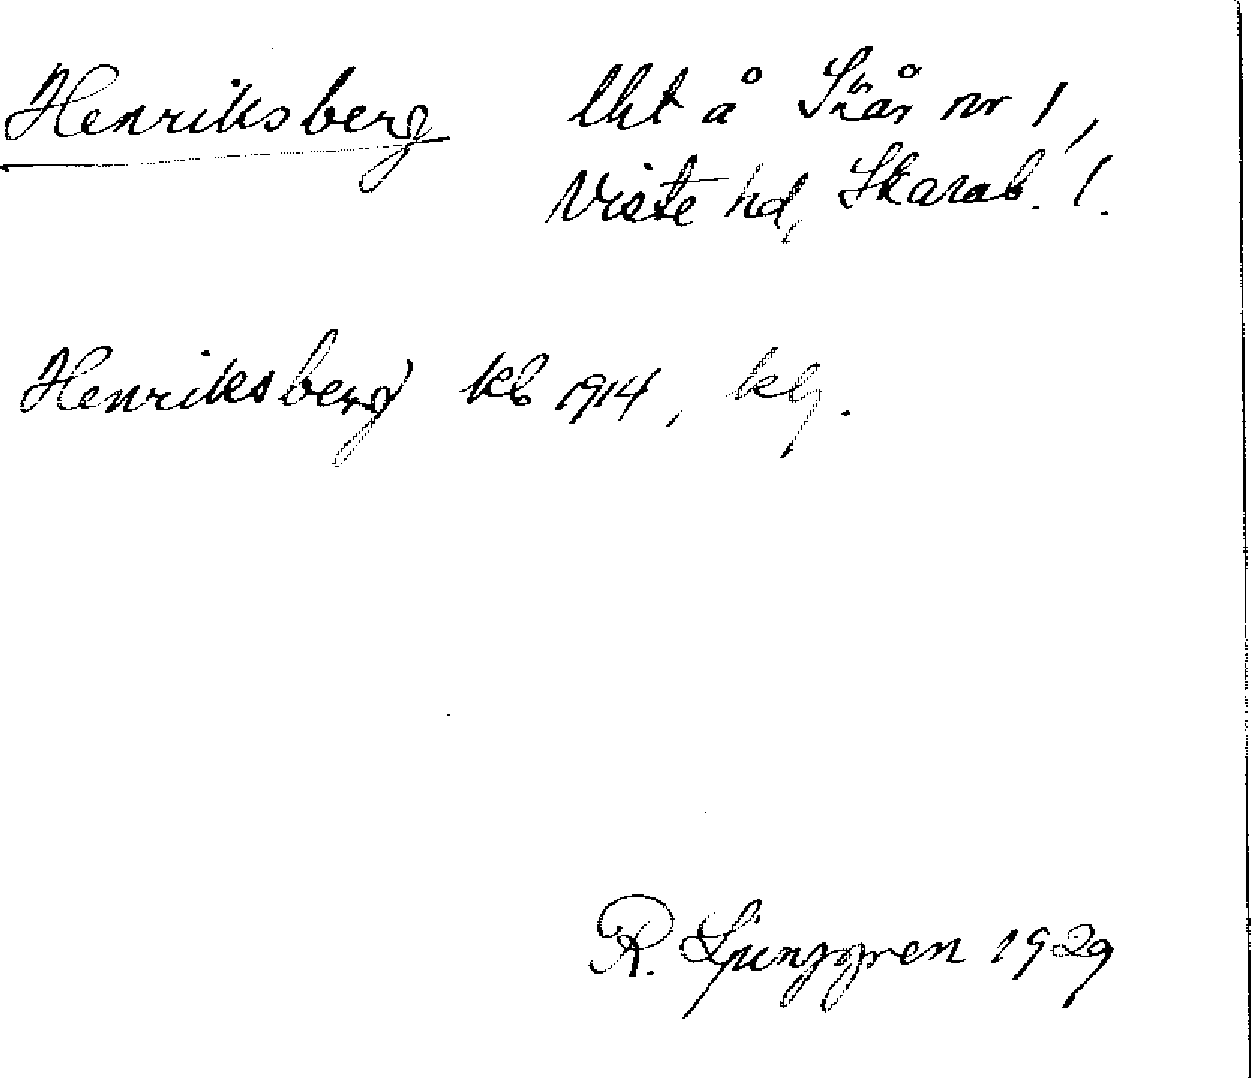 Henriksberg lht å Skår nr 1,
Viste hd, Skarab. l.
Henriksberg kb 1914, klg.
R. Ljunggren 1929